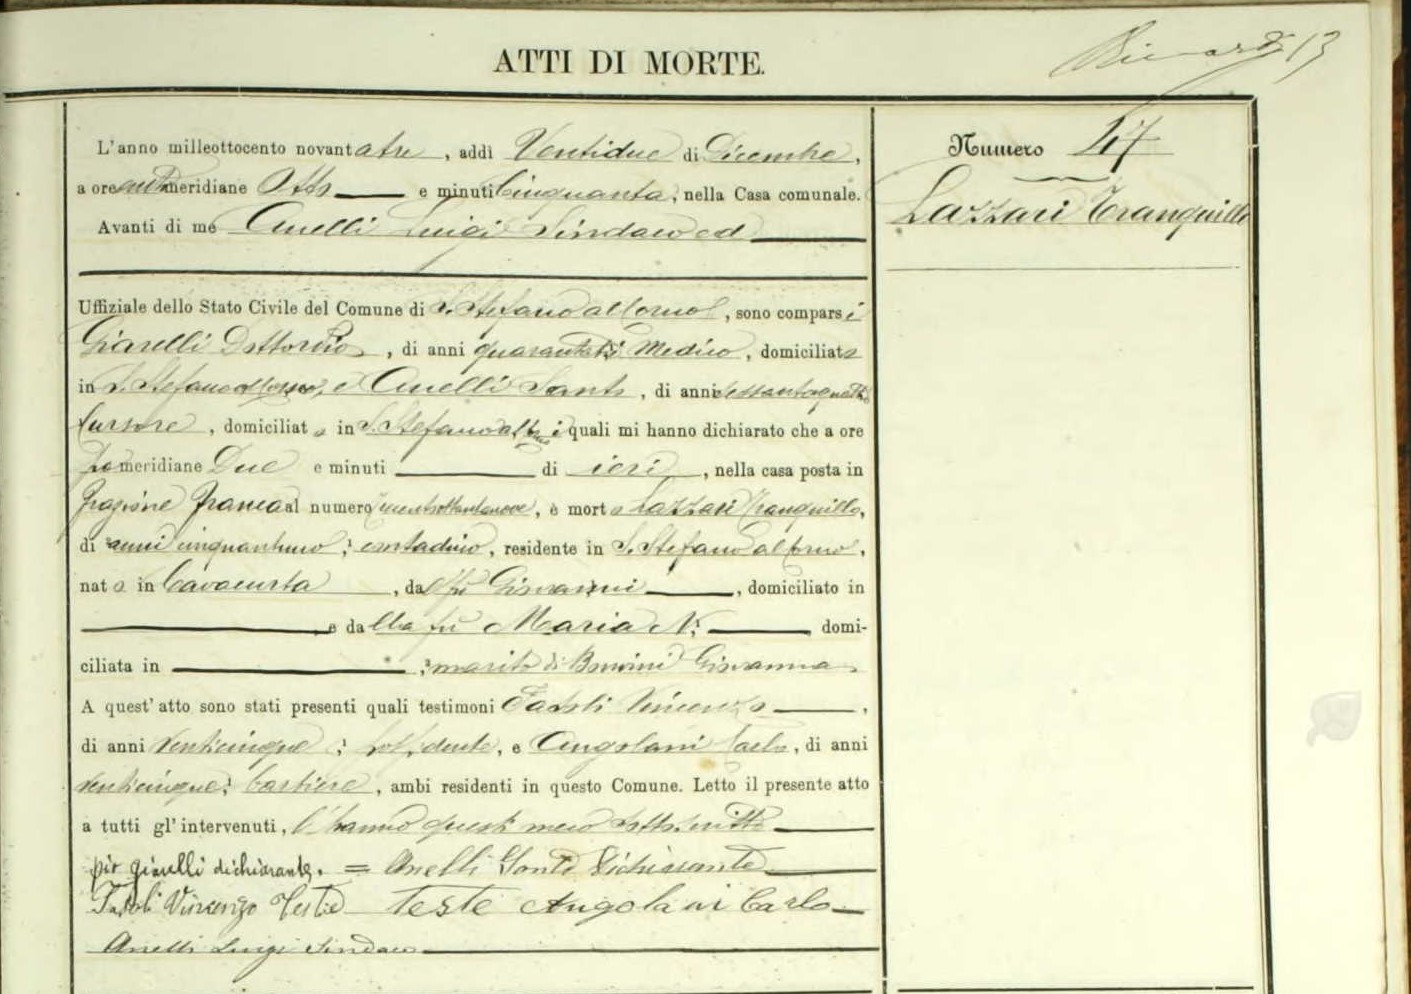 ATTI DI MORTE.
13
Numero 47
Lazzari Tranquillo
L'anno milleottocento novantatre, addì Ventidue di Dicembre,
a ore antimeridiane Otto e minuti Cinquanta, nella Casa comunale.
Avanti di me Anelli Luigi Sindaco ed
Uffiziale dello Stato Civile del Comune di S. Stefano al Corno, sono comparsi
Giarelli Dottor Pio, di anni Medico, domiciliato
in S. Stefano al Corno, e Anelli Santo, di anni sessantaquattro
Cursore, domiciliato in S. Stefano al Corno i quali mi hanno dichiarato che a ore
pomeridiane Due e minuti di ieri, nella casa posta in
frazione al numero, è morto Lazzari Tranquillo,
di anni cinquantuno, contadino, residente in S. Stefano al Corno,
nato in Cavacurta, dal fu Giovanni, domiciliato in
e dalla fu Maria N. domi-
ciliata in, marito di Giovanna
A quest'atto sono stati presenti quali testimoni Fasoli Vincenzo,
di anni venticinque, possidente, e Angolani Carlo, di anni
venticinque, barbiere, ambi residenti in questo Comune. Letto il presente atto
a tutti gl'intervenuti, l'hanno questi meco sottoscritto
pio giarelli dichiarante. = Anelli Santo Dichiarante
Fasoli Vincenzo Teste Teste Angolani Carlo
Anelli Luigi Sindaco